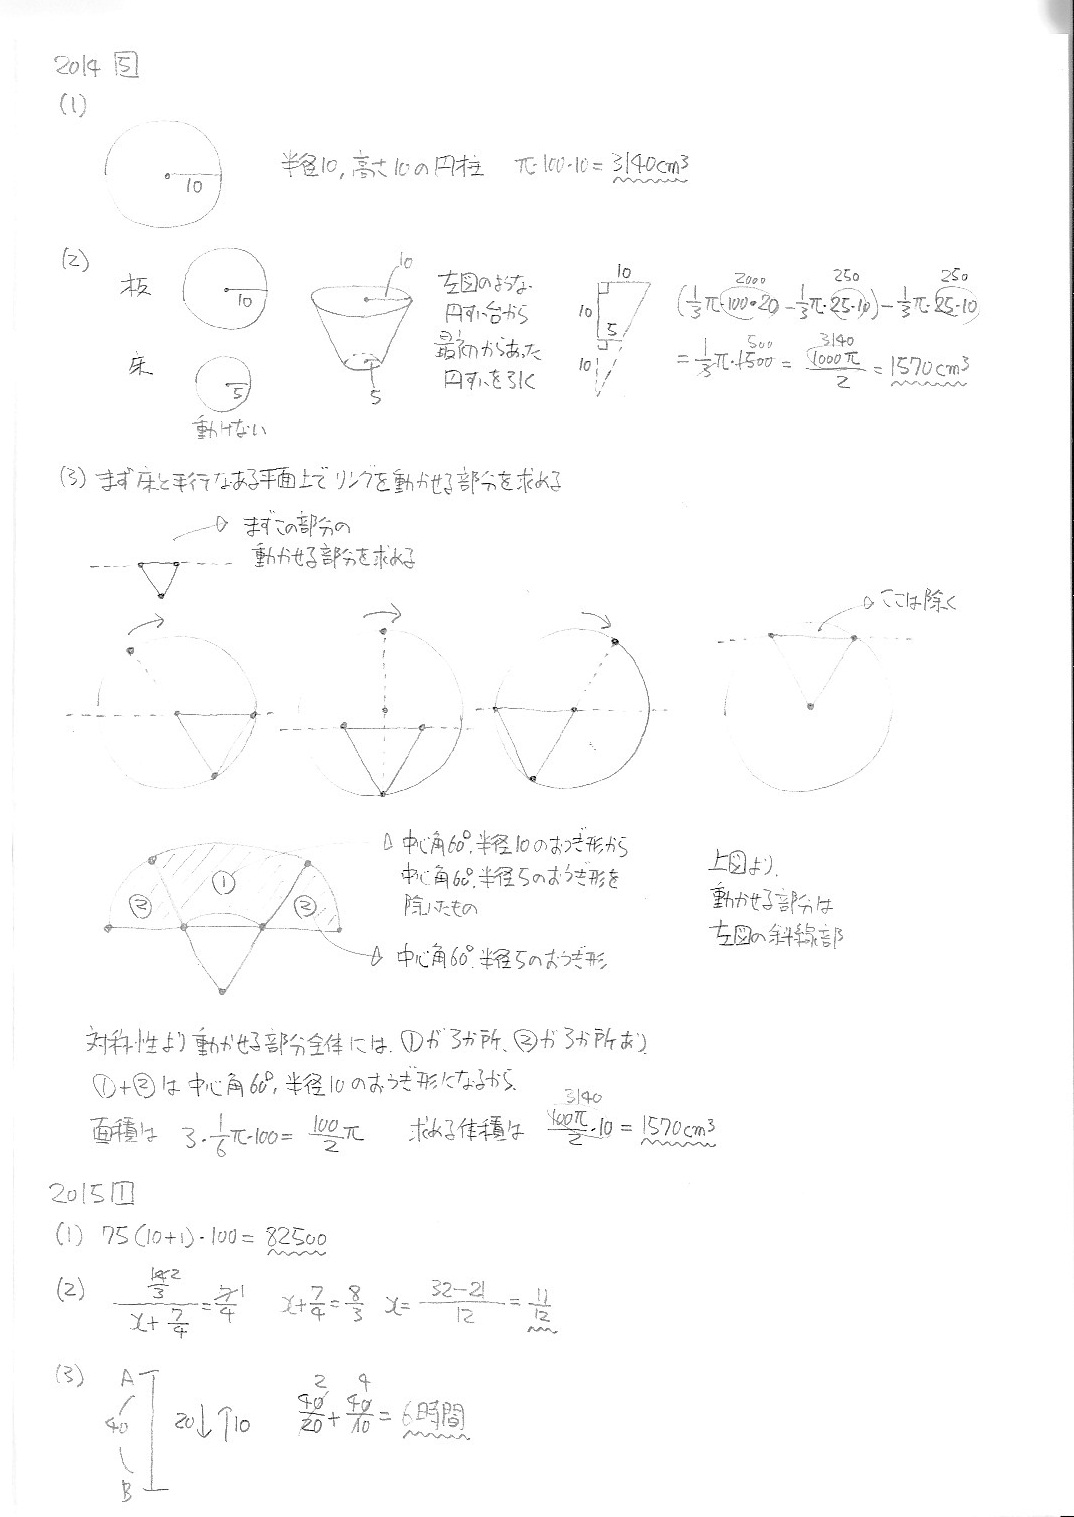 2014 5
(1)
10
半径10,高さ10の円柱 π・100・10=3140cm³
(2)
板
10
床
5
動けない
10
5
左図のような
円すい台から
最初からあった
円すいを引く
10
10
5
10
2000 250 250
(1/3π・100・20-1/3π・25・10)-1/3π・25・10
500 3140
=1/3π・1500=1000π/2=1570cm³
(3) まず床と平行なある平面上でリングを動かせる部分を求める
まずこの部分の
動かせる部分を求める
ここは除く
① ② ②
中心角60°,半径10のおうぎ形から
中心角60°,半径5のおうぎ形を
除いたもの
中心角60°,半径5のおうぎ形
上図より,
動かせる部分は
左図の斜線部
対称性より動かせる部分全体には,①が3か所,②が3か所あり
①+②は中心角60°,半径10のおうぎ形になるから,
面積は 3・1/6π・100=100/2π 求める体積は 3140 100π/2・10=1570cm³
2015 1
(1) 75(10+1)・100=82500
(2) 14/3 2 / x+7/4 = 7/4 1 x+7/4=8/3 x=32-21/12=11/12
(3) A
40
B
20↓↑10
2 4
40/20+40/10=6時間